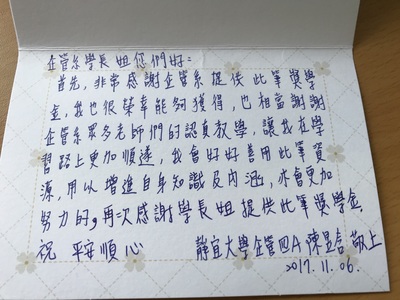 企管系學長姐您們好:
首先,非常感謝企管系提供此筆獎學
金,我也很榮幸能夠獲得,也相當謝謝
企管系眾多老師們的認真教學,讓我在學
習路上更加順遂,我會好好善用此筆資
源,用以增進自身知識及內涵,亦會更加
努力的,再次感謝學長姐提供此筆獎學金
祝 平安順心 靜宜大學企管四A 陳昱含 敬上
2017.11.06.